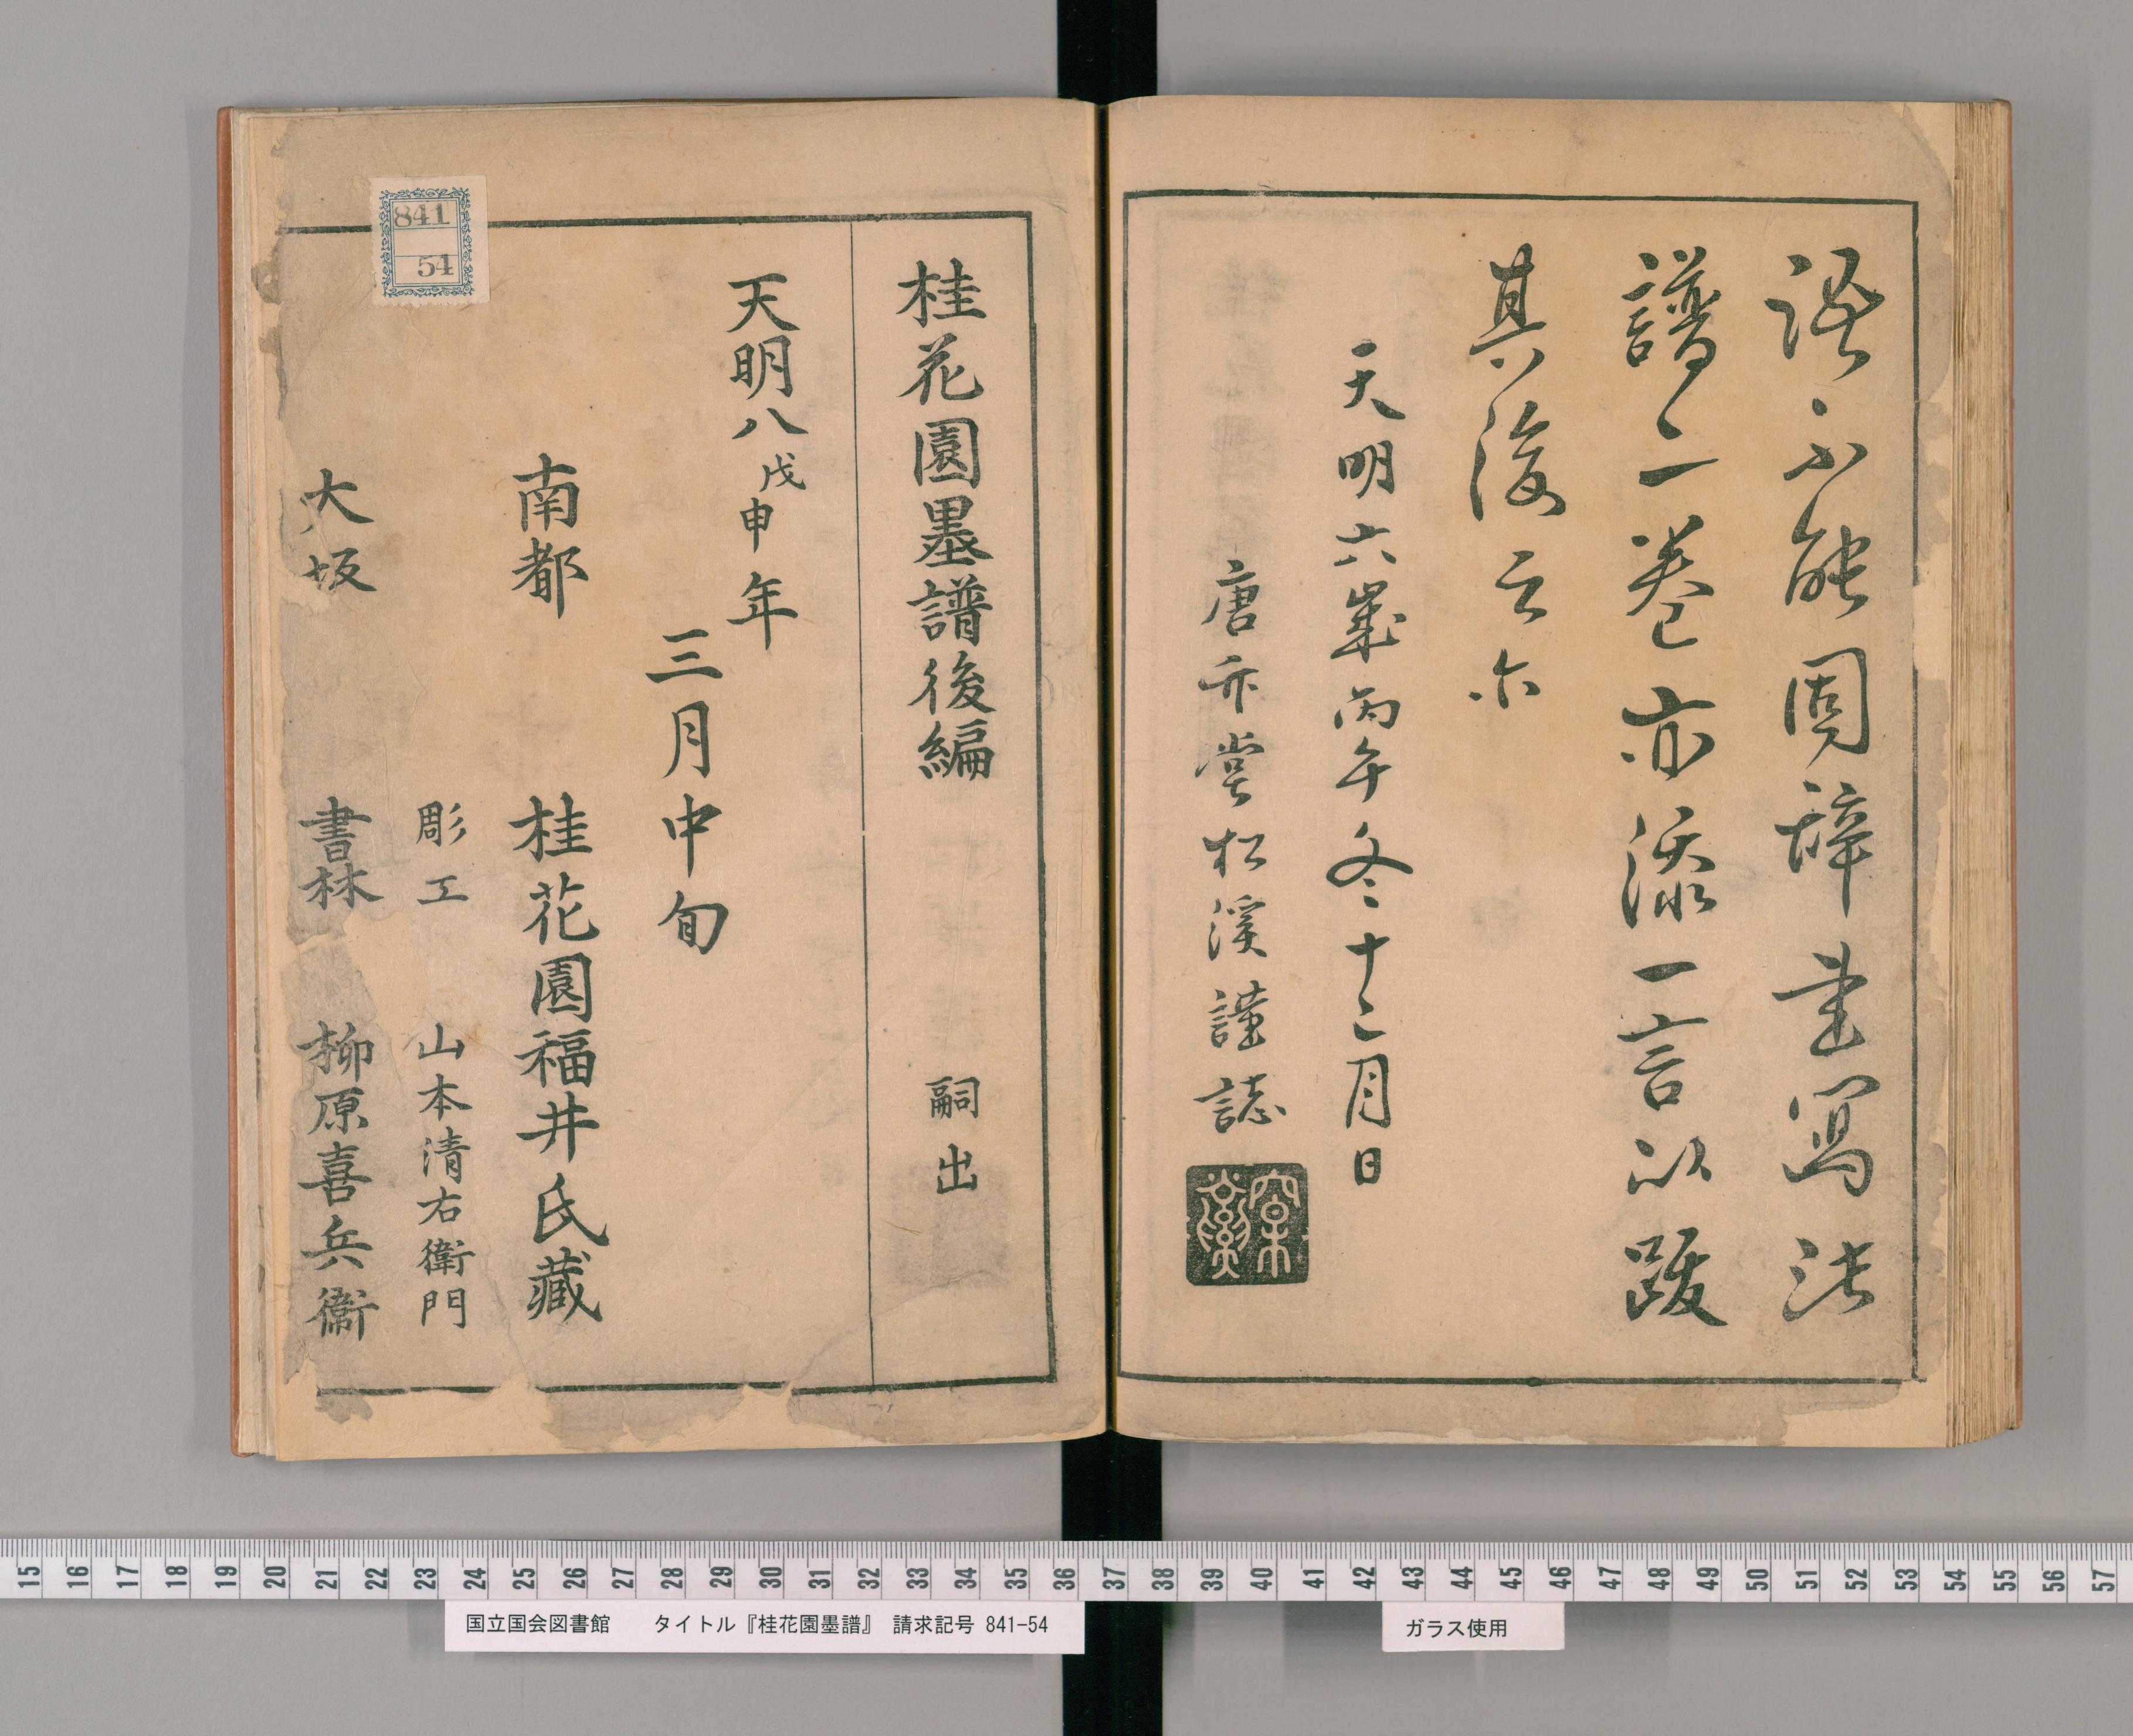 語不能固辞書写法
譜二巻亦添一言以跋
其後云尓
天明六歳丙午冬十二月日
唐 堂松溪謹誌
桂花園墨譜後編 嗣出
天明八戊申年
三月中旬
南都 桂花園福井氏藏
彫工 山本清右衛門
大坂 書林 柳原喜兵衞
841
54
15 16 17 18 19 20 21 22 23 24 25 26 27 28 29 30 31 32 33 34 35 36 37 38 39 40 41 42 43 44 45 46 47 48 49 50 51 52 53 54 55 56 57
国立国会図書館 タイトル『桂花園墨譜』 請求記号 841-54
ガラス使用